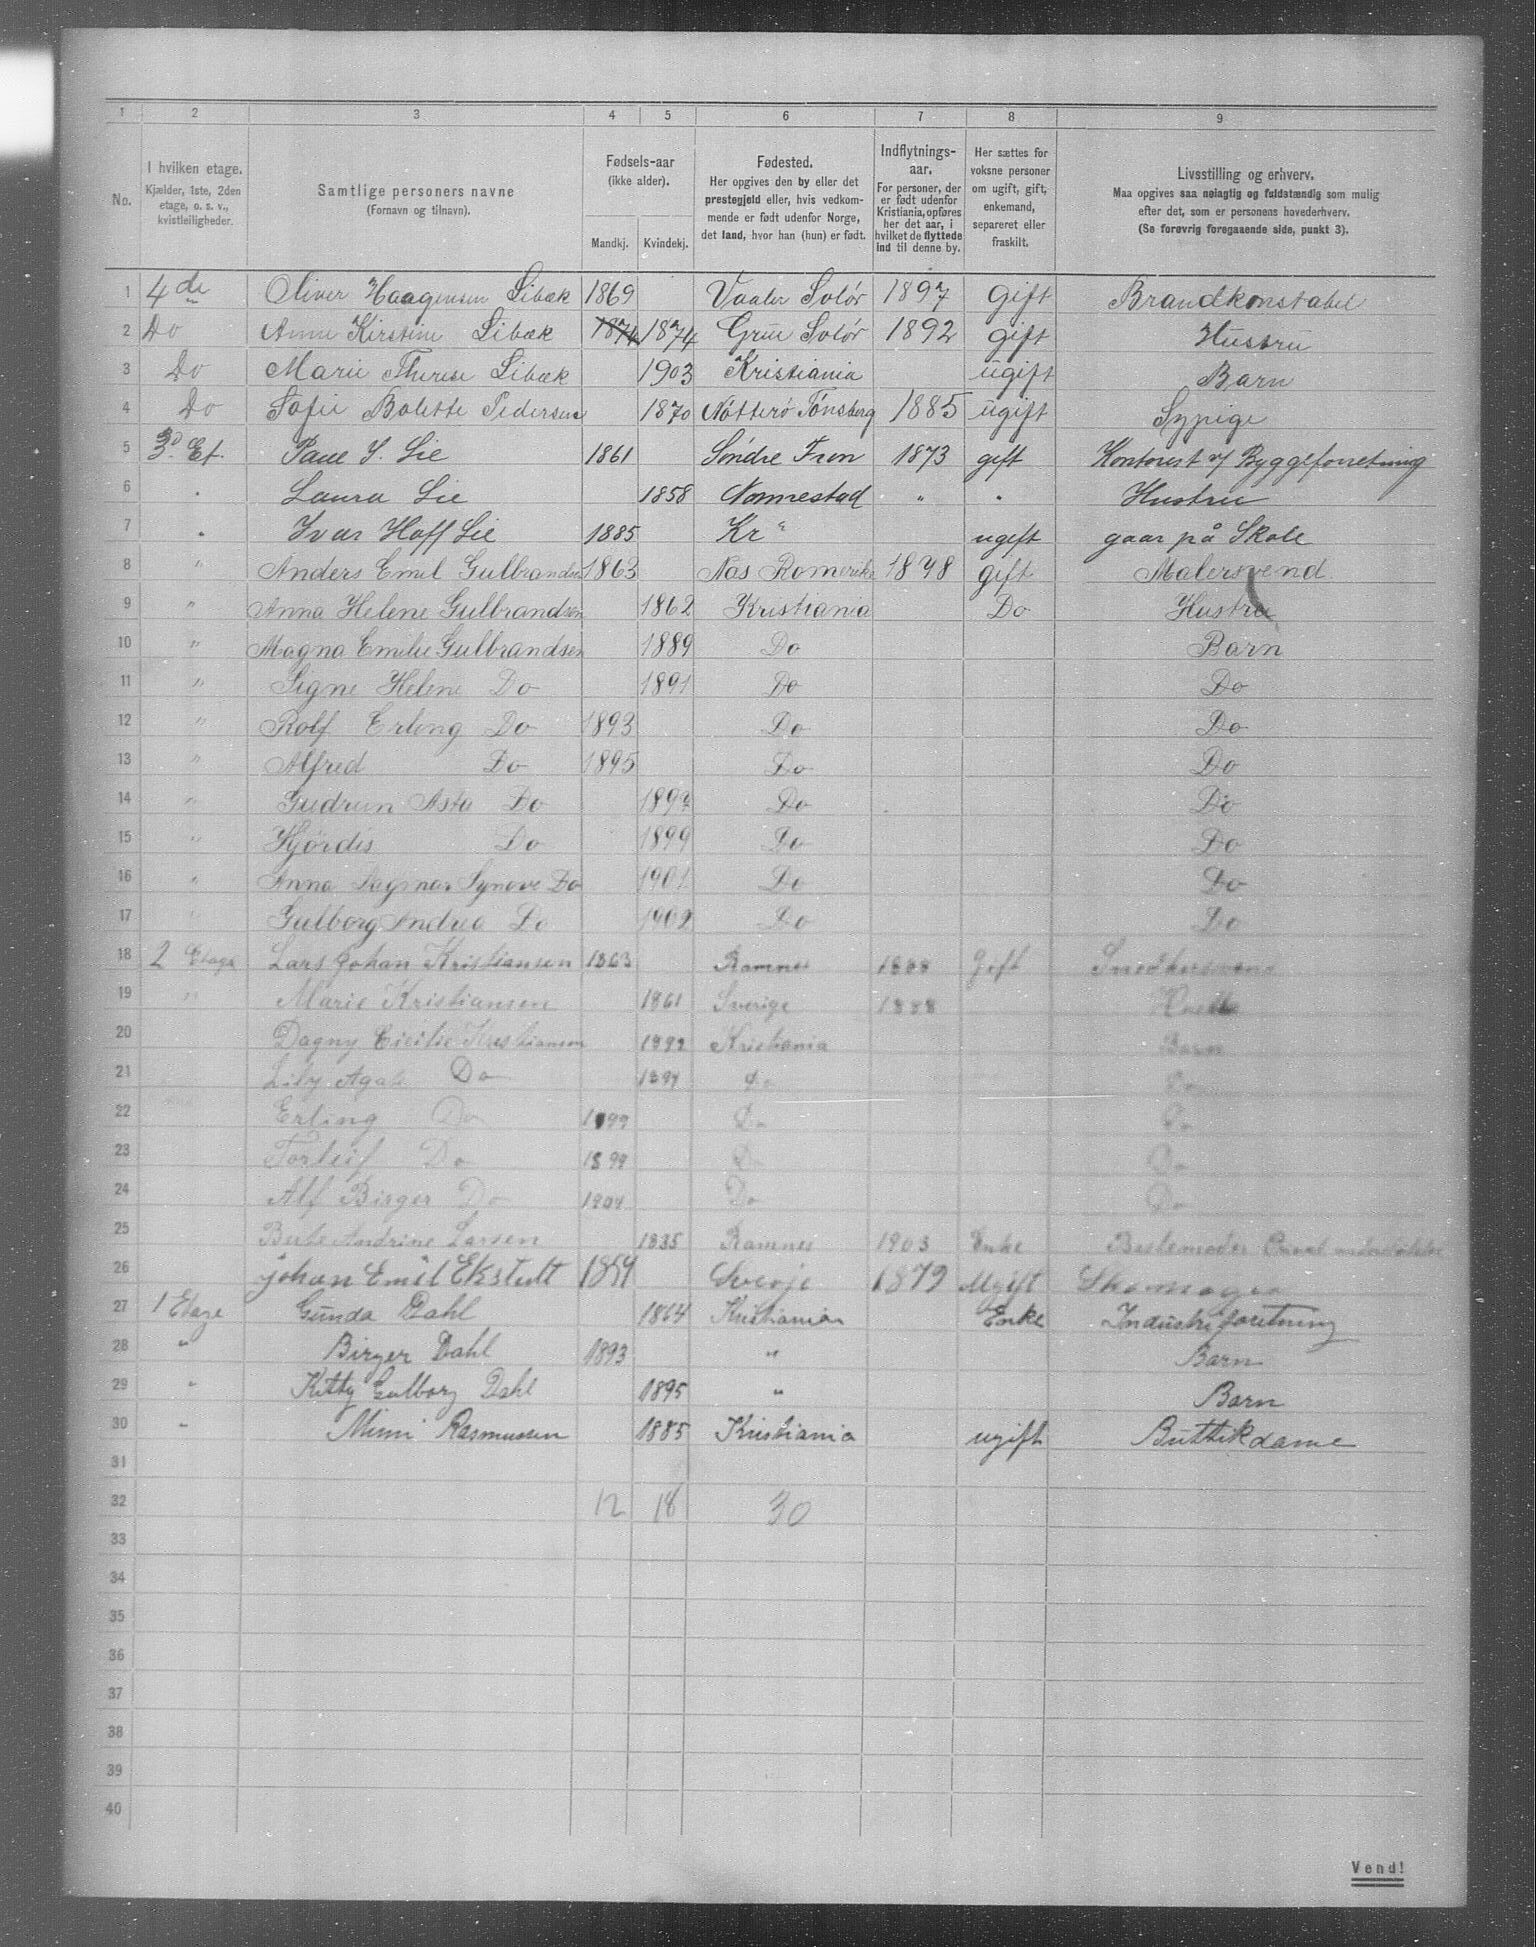 1 2 3 4 5 6 7 8 9
No.
I hvilken etage.
Kjælder, 1ste, 2den
etage, o. s. v.,
kvistleiligheder.
Samtlige personers navne
(Fornavn og tilnavn).
Fødsels-aar
(ikke alder).
Mandkj. Kvindekj.
Fødested.
Her opgives den by eller det
prestegjeld eller, hvis vedkom-
mende er født udenfor Norge,
det land, hvor han (hun) er født.
Indflytnings-
aar.
For personer, der
er født udenfor
Kristiania, opføres
her det aar, i
hvilket de flyttede
ind til denne by.
Her sættes for
voksne personer
om ugift, gift,
enkemand,
separeret eller
fraskilt.
Livsstilling og erhverv.
Maa opgives saa nøiagtig og fuldstændig som mulig
efter det, som er personens hovederhverv.
(Se forøvrig foregaaende side, punkt 3).
1 4de Oliver Haagensen Libæk 1869 Vaaler Solør 1897 gift Brandkonstabel
2 Do Anne Kirstine Libæk 1874 1874 Grue Solør 1892 gift Hustru
3 Do Marie Therese Libæk 1903 Kristiania ugift Barn
4 Do Sofie Bolette Pedersen 1870 Nøtterø Tønsberg 1885 ugift Sypige
5 3d. Et. Paul S. Lie 1861 Søndre Fron 1873 gift Kontorist v/ Byggeforretning
6 " Laura Lie 1858 Nonnestad " " Hustru
7 " Ivar Hoff Lie 1885 Kr" ugift gaar på Skole
8 " Anders Emil Gulbrandsen 1863 Nas Romerike 1878 gift Malersvend
9 " Anna Helene Gulbrandsen 1862 Kristiania Do Hustru
10 " Magna Emilie Gulbrandsen 1889 Do Barn
11 " Signe Helene Do 1891 Do Do
12 " Rolf Erling Do 1893 Do Do
13 " Alfred Do 1895 Do Do
14 " Gudrun Asta Do 1897 Do Do
15 " Hjørdis Do 1899 Do Do
16 " Anna Dagmar Synøve Do 1901 Do Do
17 " Gulborg Andrea Do 1902 Do Do
18 2 Etage Lars Johan Kristiansen 1863 Ramnes 1888 Gift Snedkersvend
19 " Marie Kristiansen 1861 Sverige 1888
20 Dagny Cicilie Kristiansen 1892 Kristiania Barn
21 Lily Do Do Do
22 Erling Do Do Do
23 Torleif Do 1899 Do Do
24 Alf Birger Do 1904 Do Do
25 Berte Andrine Larsen 1835 Ramnes 1903 Enke Bestemoder
26 Johan Emil Ekstedt 1859 Sverje 1879 Ugift Skomager
27 1 Etage Gunda Dahl 1864 Kristiania Enke Industriforetning
28 " Birger Dahl 1893 " Barn
29 " Kitty Gulborg Dahl 1895 " Barn
30 " Mimi Rasmussen 1885 Kristiania ugift Buttikdame
31
32 12 18 30
33
34
35
36
37
38
39
40
Vend!